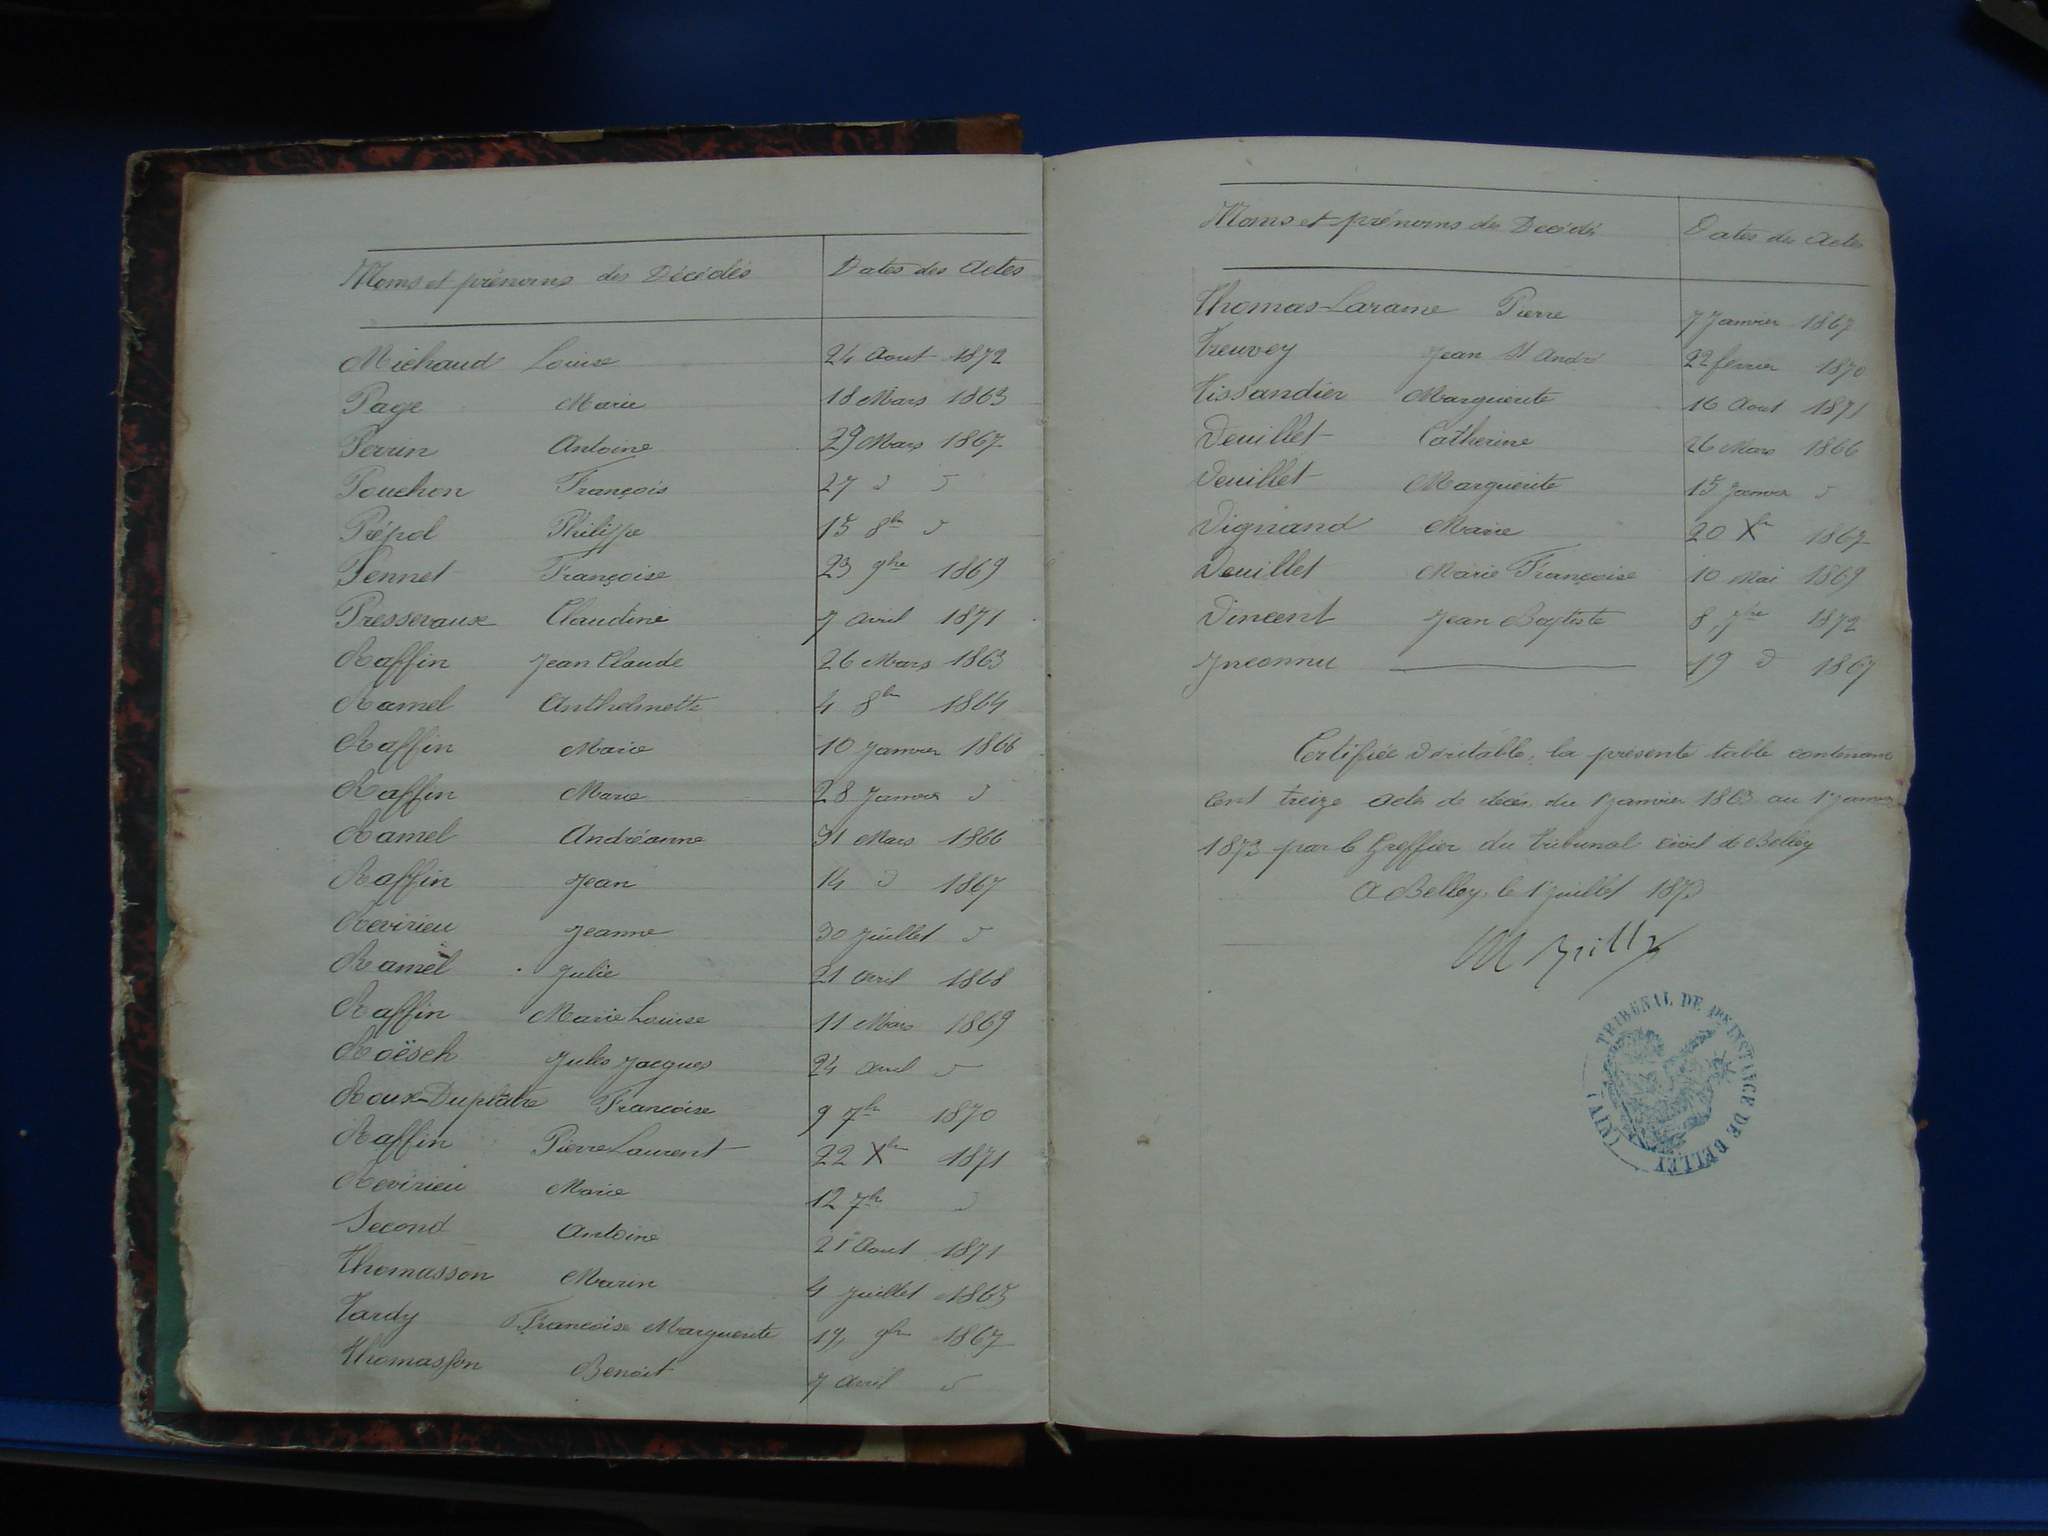 Noms et prénoms des Décédés Dates des Actes
Michaud Louise 24 Aout 1872
Page Marie 18 Mars 1863
Perrin Antoine 29 Mars 1867
Pouchon François 27 d d
Prépol Philippe 15 8bre d
Pennet Françoise 23 9bre 1869
Pressevaux Claudine 7 Avril 1871
Raffin Jean Claude 26 Mars 1863
Ramel Anthelmette 4 8bre 1864
Raffin Marie 10 Janvier 1866
Raffin Marie 28 Janvier d
Ramel Andréanne 31 Mars 1866
Raffin Jean 14 d 1867
Revirieu Jeanne 30 Juillet d
Ramel Julie 21 Avril 1868
Raffin Marie Louise 11 Mars 1869
Roësch Jules Jacques 24 Avril d
Roux-Duplâtre Françoise 9 7bre 1870
Raffin Pierre Laurent 22 Xbre 1871
Revirieu Marie 12 7bre d
Second Antoine 21 Aout 1871
Thomasson Marin 4 Juillet 1865
Tardy Françoise Marguerite 19 9bre 1867
Thomasson Benoit 7 Avril d
Noms et prénoms des Décédés Dates des Actes
Thomas-Larame Pierre 7 Janvier 1867
Treuvey Jean St André 22 février 1870
Tissandier Marguerite 16 Aout 1871
Veuillet Catherine 26 Mars 1866
Veuillet Marguerite 15 Janvier d
Vignand Marie 20 Xbre 1867
Veuillet Marie Françoise 10 Mai 1869
Vincent Jean Baptiste 8 7bre 1872
Inconnu 19 d 1867
Certifiée véritable, la présente table contenant
cent treize actes de décès du 1er janvier 1863 au 1er janvier
1873 par le Greffier du tribunal civil de Belley
A Belley, le 1er juillet 1873
TRIBUNAL DE 1RE INSTANCE DE BELLEY (AIN)